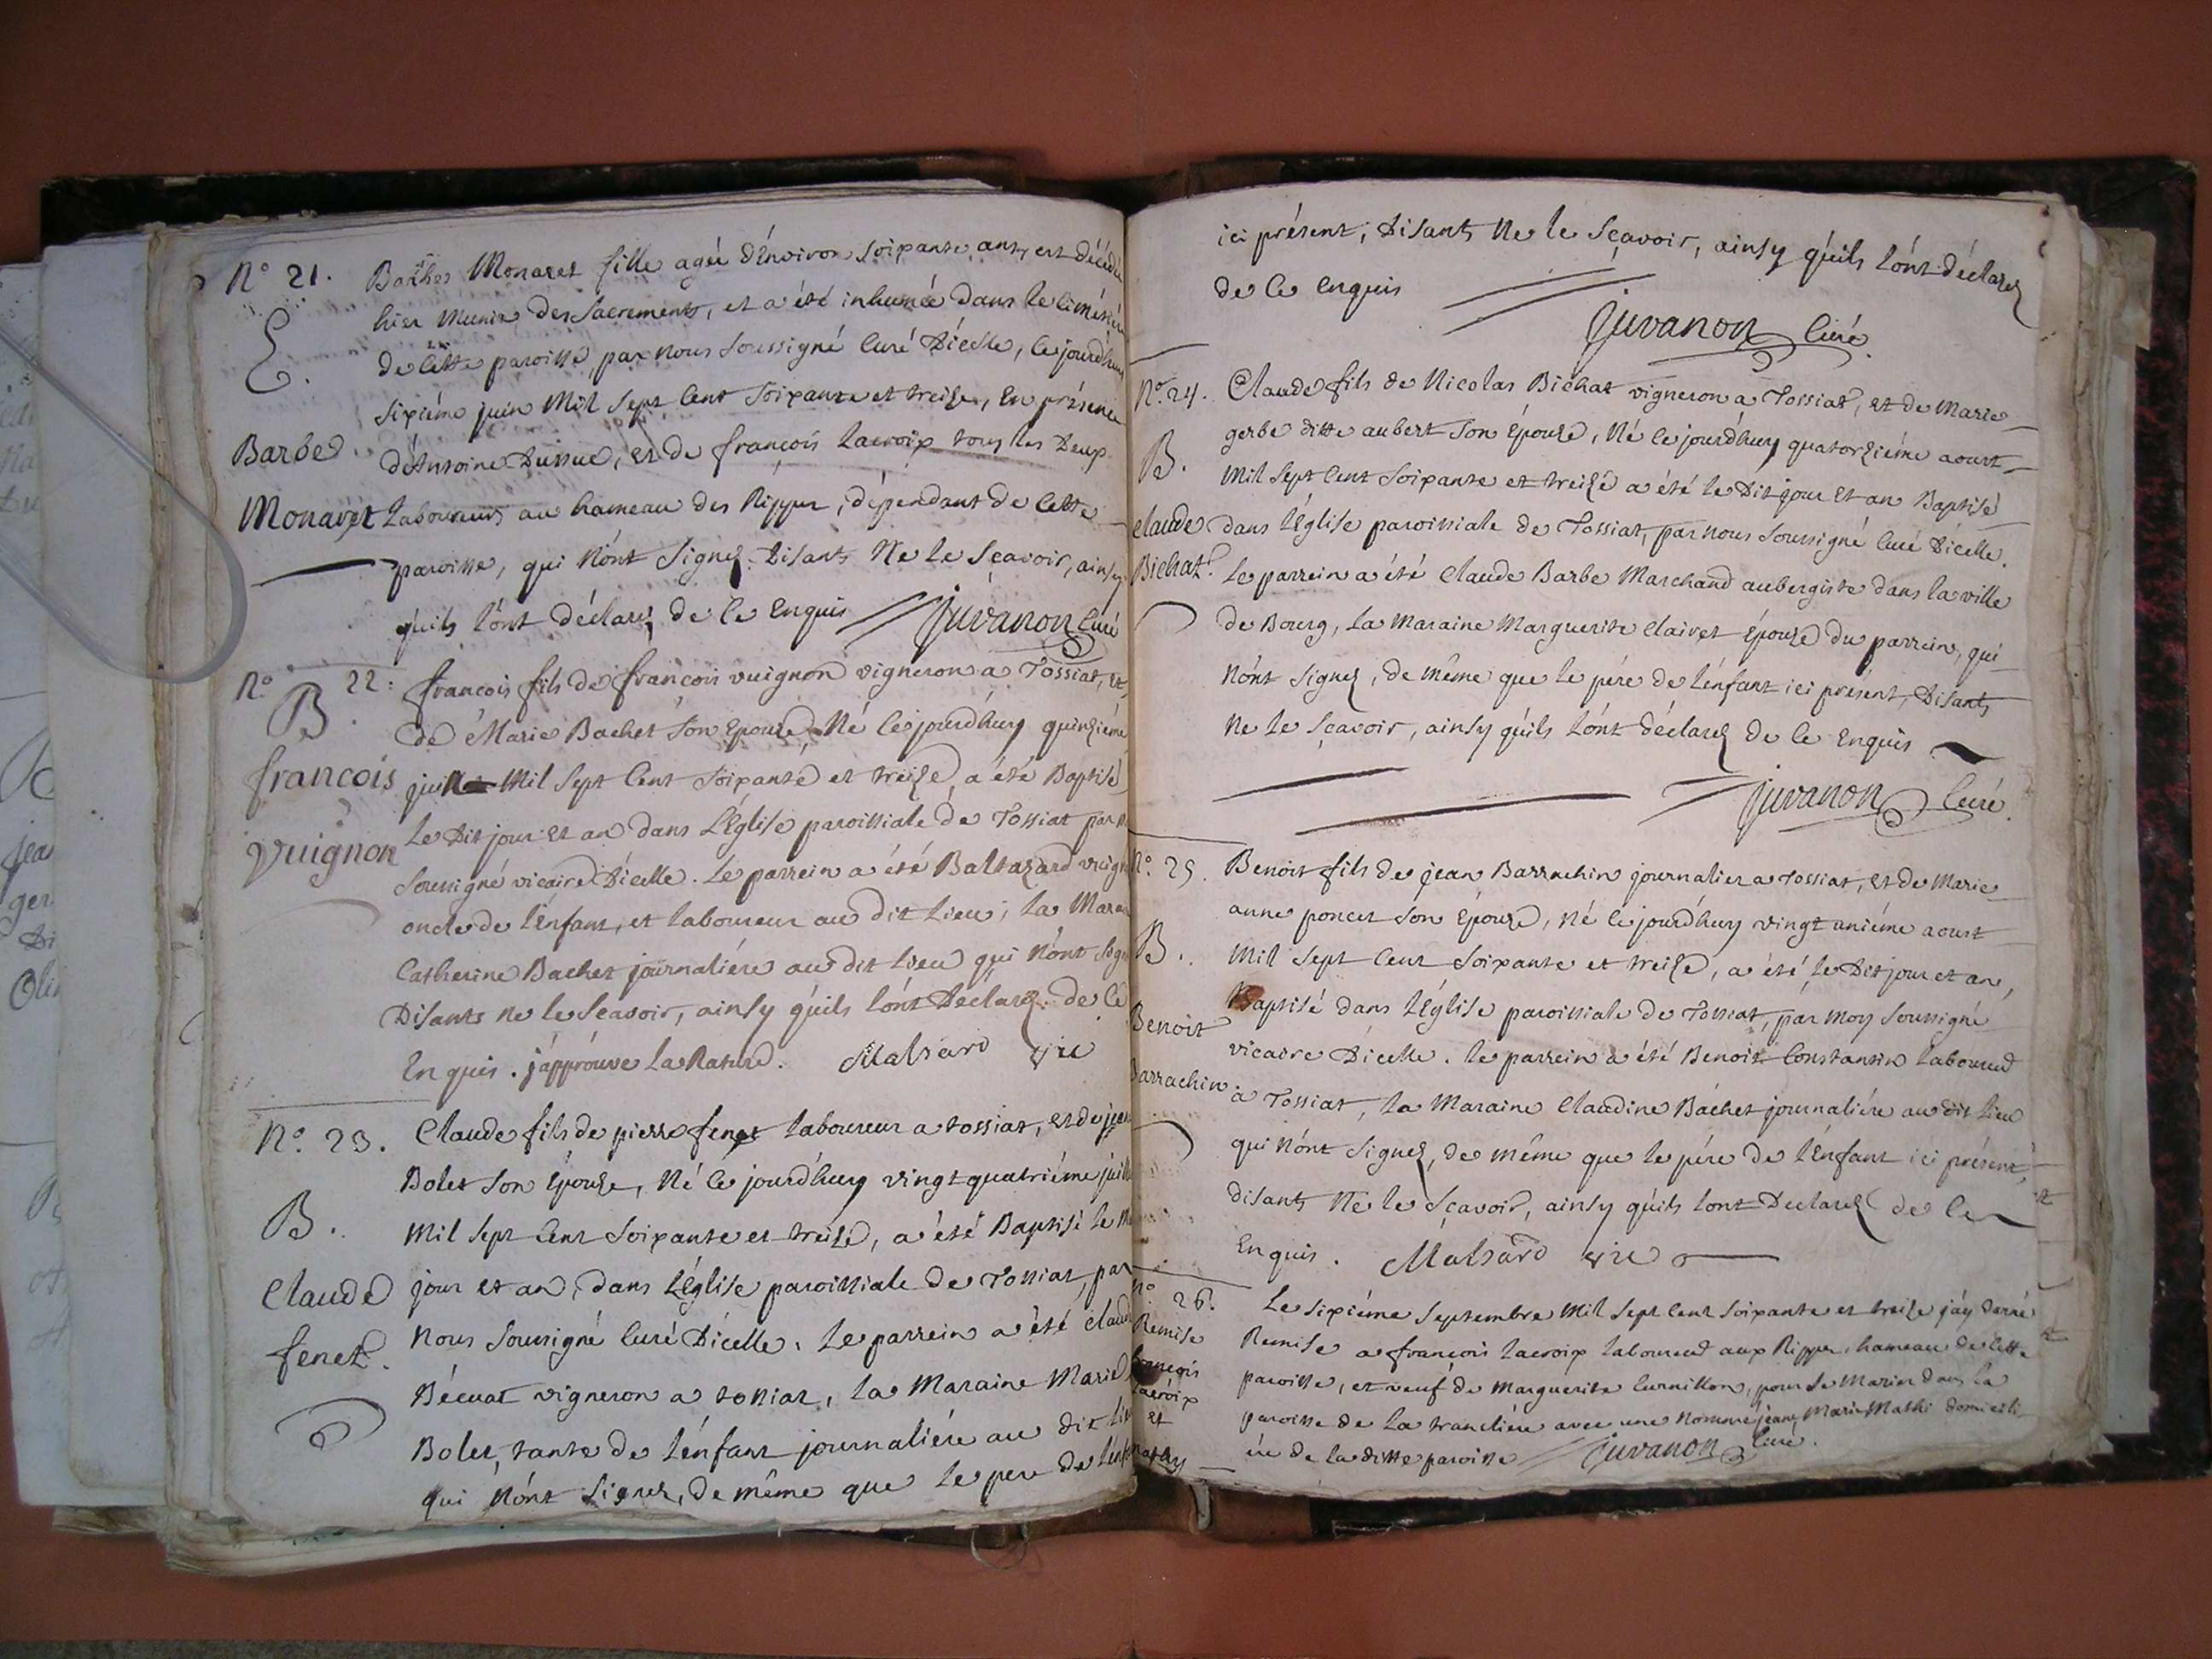 N° 21. Barbe Monaret fille agée d'Environ Soixante ans, est décédée
hier Munie des Sacrements, et a été inhumée dans le Cimétiére
E. de Cette paroisse, par nous Soussigné Curé D'icelle, Cejourd'huy
Sixiéme juin Mil Sept Cent Soixante et treize, En présence
Barbe d'Antoine et de françois Lacroix tous les Deux
Monaret Laboureurs au hameau des Rippes, dépendant de Cette
paroisse, qui N'ont Signez Disants Ne le Sçavoir, ainsy
qu'ils L'ónt déclarez de Ce Enquis Juvanon Curé
N° 22: françois fils de françois vuignon vigneron a Tossiat, et
B. de Marie Bachet Son Epouze, Né Cejourd'huy quinziéme
françois juil Mil Sept Cent Soixante et treize, a été Baptisé
Vuignon Le Dit jour et an dans L'Église paroissiale de Tossiat par
Soussigné vicaire D'icelle. Le parrein a été Baltazard vuign
oncle de L'Enfant, et laboureur au dit Lieu; La Marai
Catherine Bachet journaliére au dit Lieu qui N'ont Sig
Disants ne le Scavoir, ainsy qu'ils L'ónt Déclarez de Ce
Enquis. j'approuve La Rature. Malsard vic
N°. 23. Claude fils de pierre fenet laboureur a tossiat, et de jean
Bolet Son Épouze, Né Ce jourd'huy vingt quatriéme juill
B. Mil Sept Cent Soixante et treize, a été Baptisé le
Claude jour et an, dans L'Église paroissiale de Tossiat, par
fenet. Nous Soussigné Curé D'icelle. Le parrein a été Claud
Bécuat vigneron a tossiat, La Maraine Marie
Bolet, tante de L'énfant journaliére au dit Lieu
qui N'ónt Signez, de même que le pere de L'énf
ici présent, Disants Ne le Sçavoir, ainsy qu'ils L'ónt déclarez
de Ce Enquis
Juvanon Curé.
N°. 24. Claude fils de Nicolas Bichat vigneron a Tossiat, et de Marie
gerbe ditte aubert Son Épouze, Né Ce jourd'huy quatorziéme aoust
B. Mil Sept Cent Soixante et treize a été le Dit jour Et an Baptisé
Claude dans L'église paroissiale de Tossiat, par nous Soussigné Curé D'icelle.
Bichat. Le parrein a été Claude Barbe Marchand aubergiste dans la ville
de Bourg, La Maraine Marguerite Clairet Épouze du parrein, qui
N'ónt Signez, de même que le pére de L'énfant ici présent, Disants
Ne le Sçavoir, ainsy qu'ils L'ónt déclarez de Ce Enquis
Juvanon Curé.
N°. 25. Benoit fils de jean Barrachin journalier a Tossiat, Et de Marie
anne poncet Són Épouze, Né Ce jourd'huy vingt uniéme aoust
B. Mil Sept Cent Soixante et treize, a été, le Dit jour et an,
Baptisé dans L'Église paroissiale de Tossiat, par moy Soussigné
Benoit vicaire D'icelle. le parrein a été Benoit Constantin laboureur
Barrachin a Tossiat, La Maraine Claudine Bachet journaliére au dit Lieu
qui N'ónt Signez, de même que le pére de L'Enfant ici présent,
disants Ne le Sçavoir, ainsy qu'ils L'ont Declarez de Ce
Enquis. Malsard vic
N°. 26. Le Sixiéme Septembre Mil Sept Cent Soixante et treize j'ay donné
Remise Remise a françois Lacroix laboureur aux Rippes, hameau de Cette
françois paroisse, et veuf de Marguerite Curnillon, pour Se Marier dans La
Lacroix paroisse de la tranclière avec une Nommé jeane Marie Mathi domicili
et
Mathy ée de La ditte paroisse Juvanon Curé.